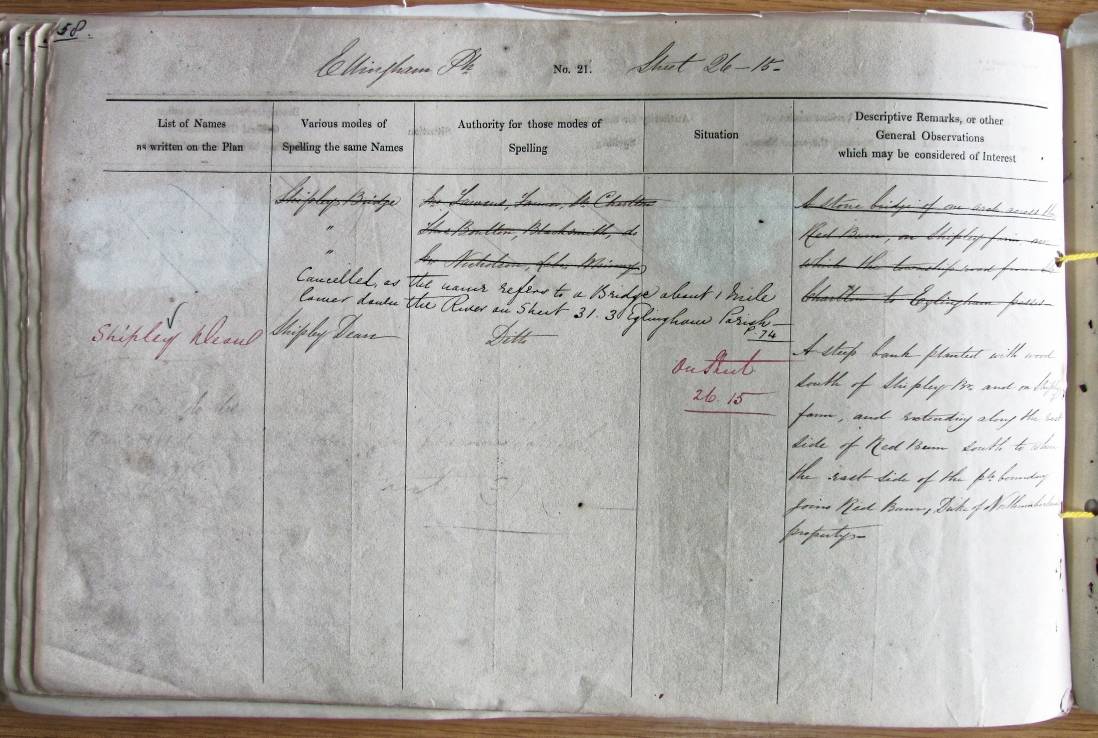 58.
Ellingham Ph. No. 21. Sheet 26-15-
List of Names
as written on the Plan
Various modes of
Spelling the same Names
Authority for those modes of
Spelling
Situation
Descriptive Remarks, or other
General Observations
which may be considered of Interest
Shipley Bridge
"
"
Farmer, Charlton
Thos Boulton, Blacksmith, do
Jno Nicholson,
A stone bridge of one arch across the
Red Burn, on Shipley farm
which the township road from
Charlton to Eglingham passes
Cancelled, as the name refers to a Bridge about 1 Mile
lower down the River on Sheet 31.3 Eglingham Parish
P. 74
Shipley Dean
Shipley Dean
Ditto
On Sheet
26.15
A steep bank planted with wood
south of Shipley Br. and on Shipley
farm, and extending along the east
side of Red Burn south to where
the east side of the ph. boundary
joins Red Burn, Duke of Northumberland
property-